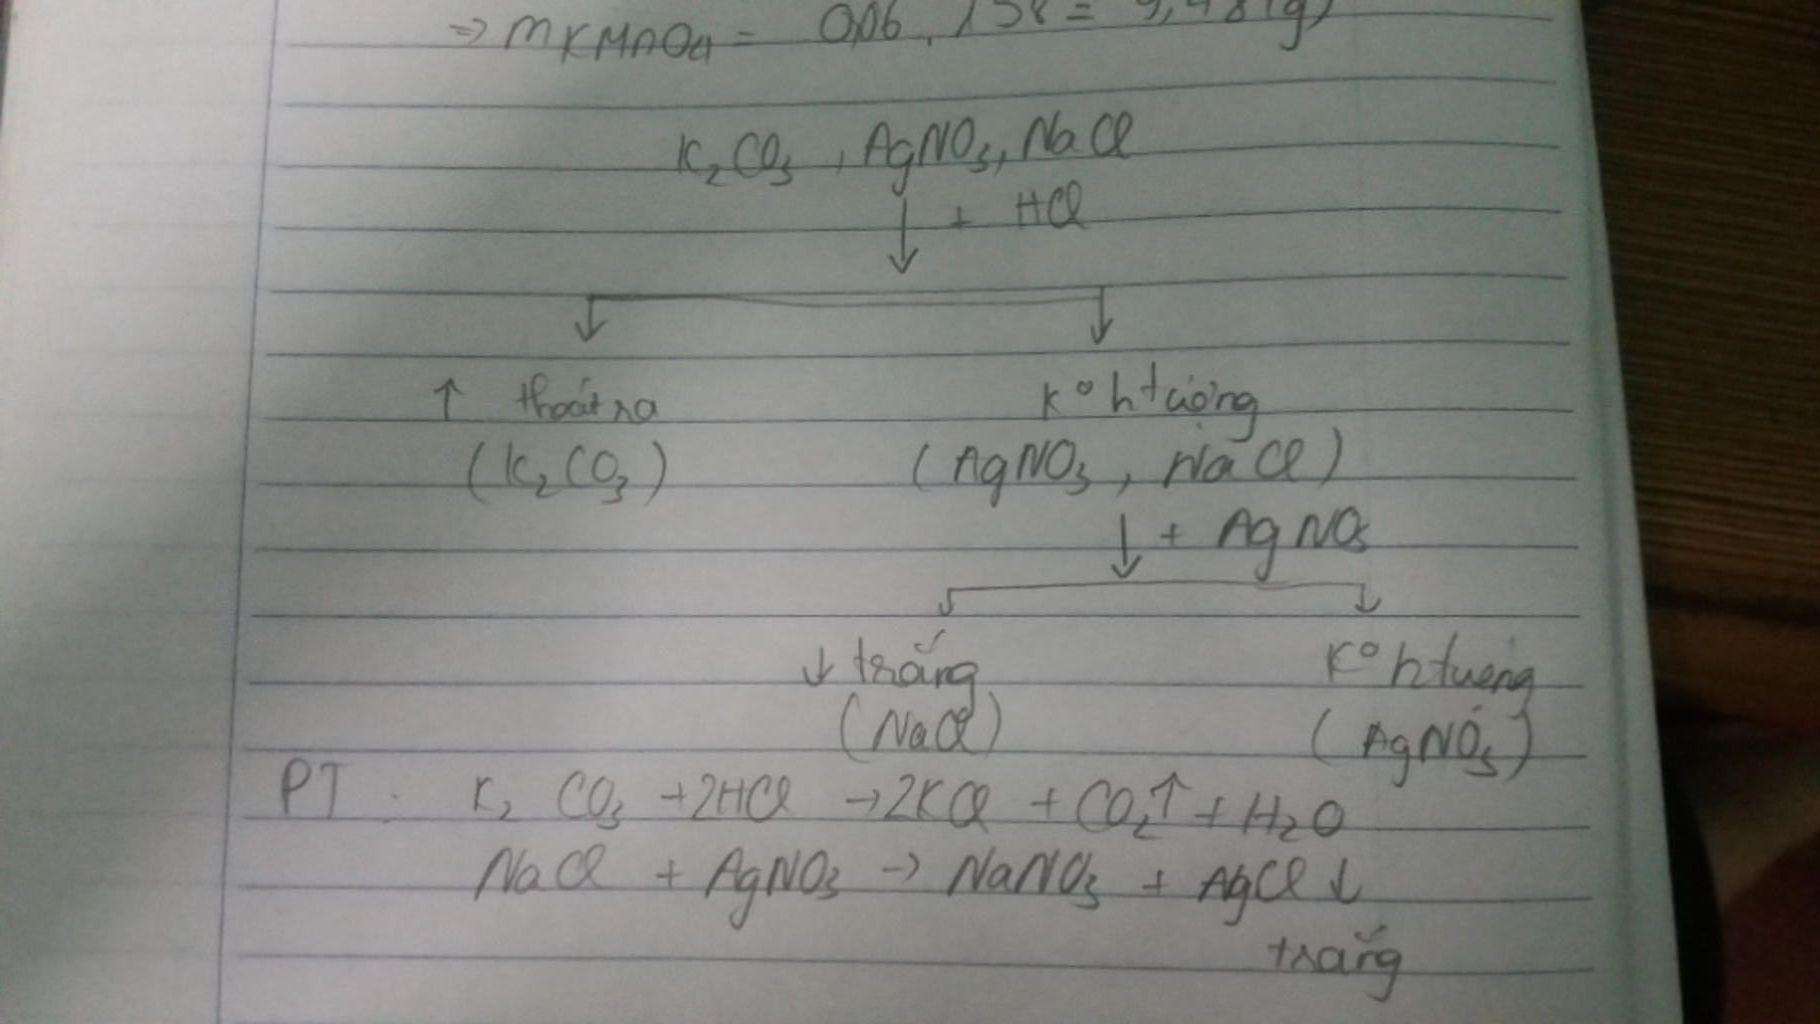 ⇒ mKMnO4 = 0,06 . 158 = 9,48 (g)
K2CO3 , AgNO3, NaCl
↓ + HCl
↑ thoát ra K° htượng
(K2CO3) (AgNO3 , NaCl)
↓ + AgNO3
↓ trắng K° htượng
(NaCl) (AgNO3)
PT : K2CO3 +2HCl → 2KCl + CO2↑ + H2O
NaCl + AgNO3 → NaNO3 + AgCl ↓
trắng